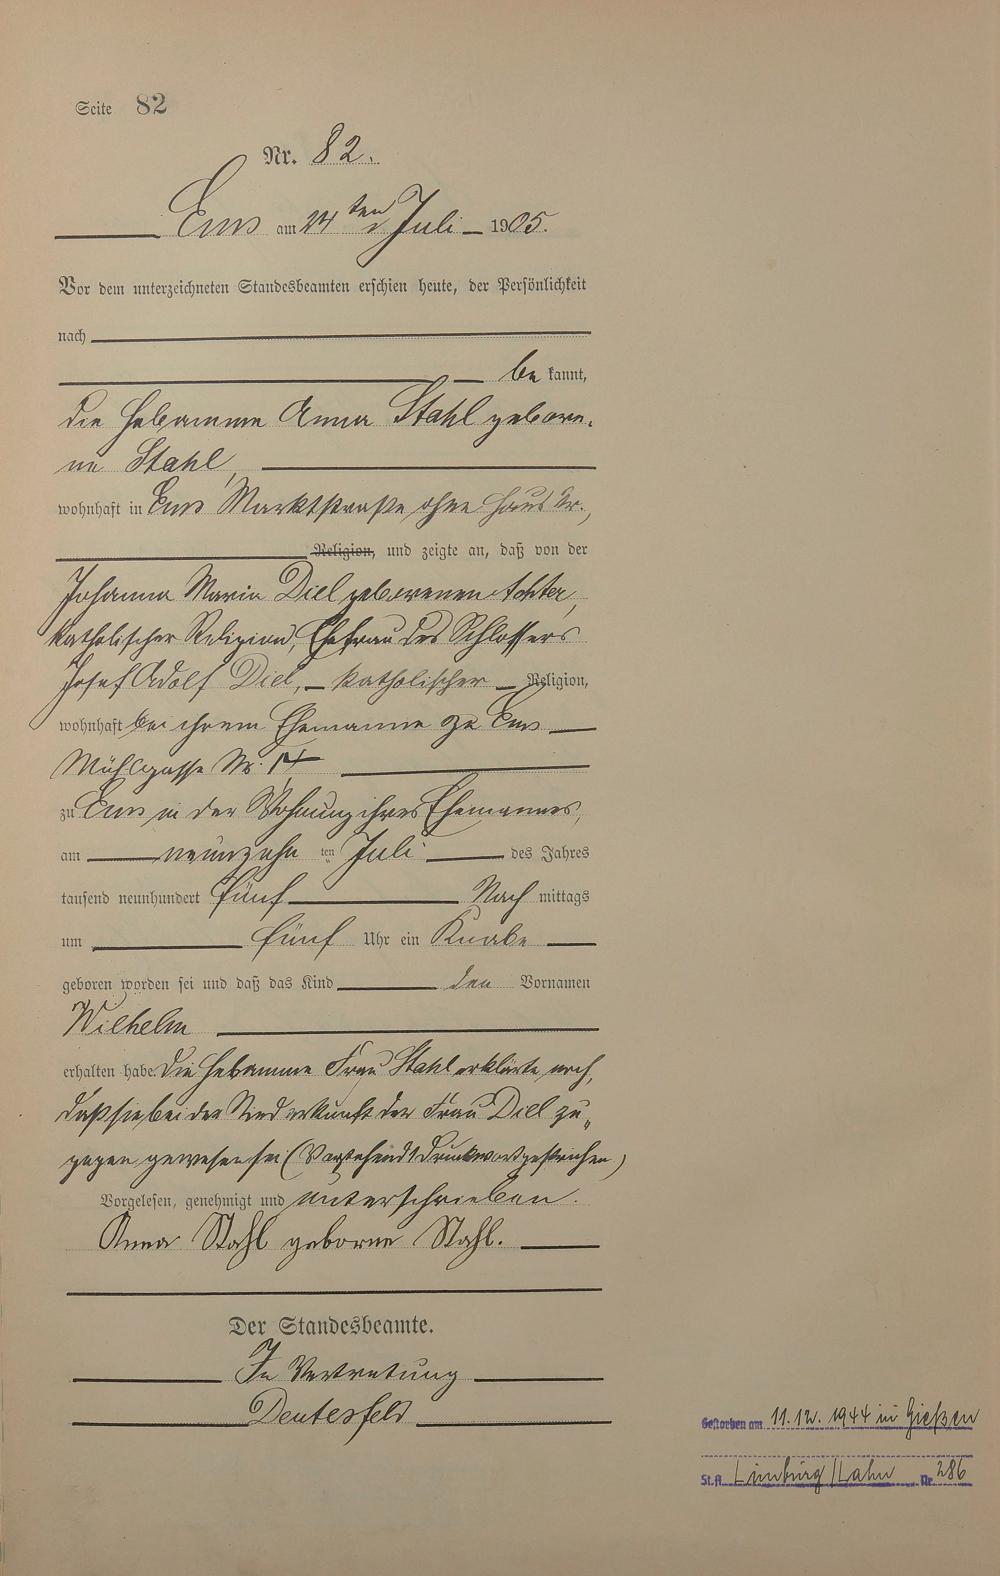 Seite 82
Nr. 82.
Ems am 24ten Juli 1905.
Vor dem unterzeichneten Standesbeamten erschien heute, der Persönlichkeit
nach
be kannt,
die Hebamme Anna Stahl gebore-
ne Stahl,
wohnhaft in Ems Marktstraße ohne Haus Nr.,
Religion, und zeigte an, daß von der
Johanna Maria Diel geborenen Achter,
katholischer Religion, Ehefrau des Schlossers
Josef Adolf Diel, katholischer Religion,
wohnhaft bei ihrem Ehemanne zu Ems
Mühlgasse Nr. 14
zu Ems in der Wohnung ihres Ehemannes,
am neunzehn ten Juli des Jahres
tausend neunhundert fünf Nach mittags
um fünf Uhr ein Knabe
geboren worden sei und daß das Kind den Vornamen
Wilhelm
erhalten habe. Die Hebamme Frau Stahl erklärte noch,
daß sie bei der Niederkunft der Frau Diel zu-
gegen gewesen sei (Vorstehend 1 Druckwort gestrichen)
Vorgelesen, genehmigt und unterschrieben.
Anna Stahl geborne Stahl.
Der Standesbeamte.
In Vertretung
Deutesfeld
Gestorben am 11.12.1944 in Gießen
St.A. Limburg/Lahn Nr 286